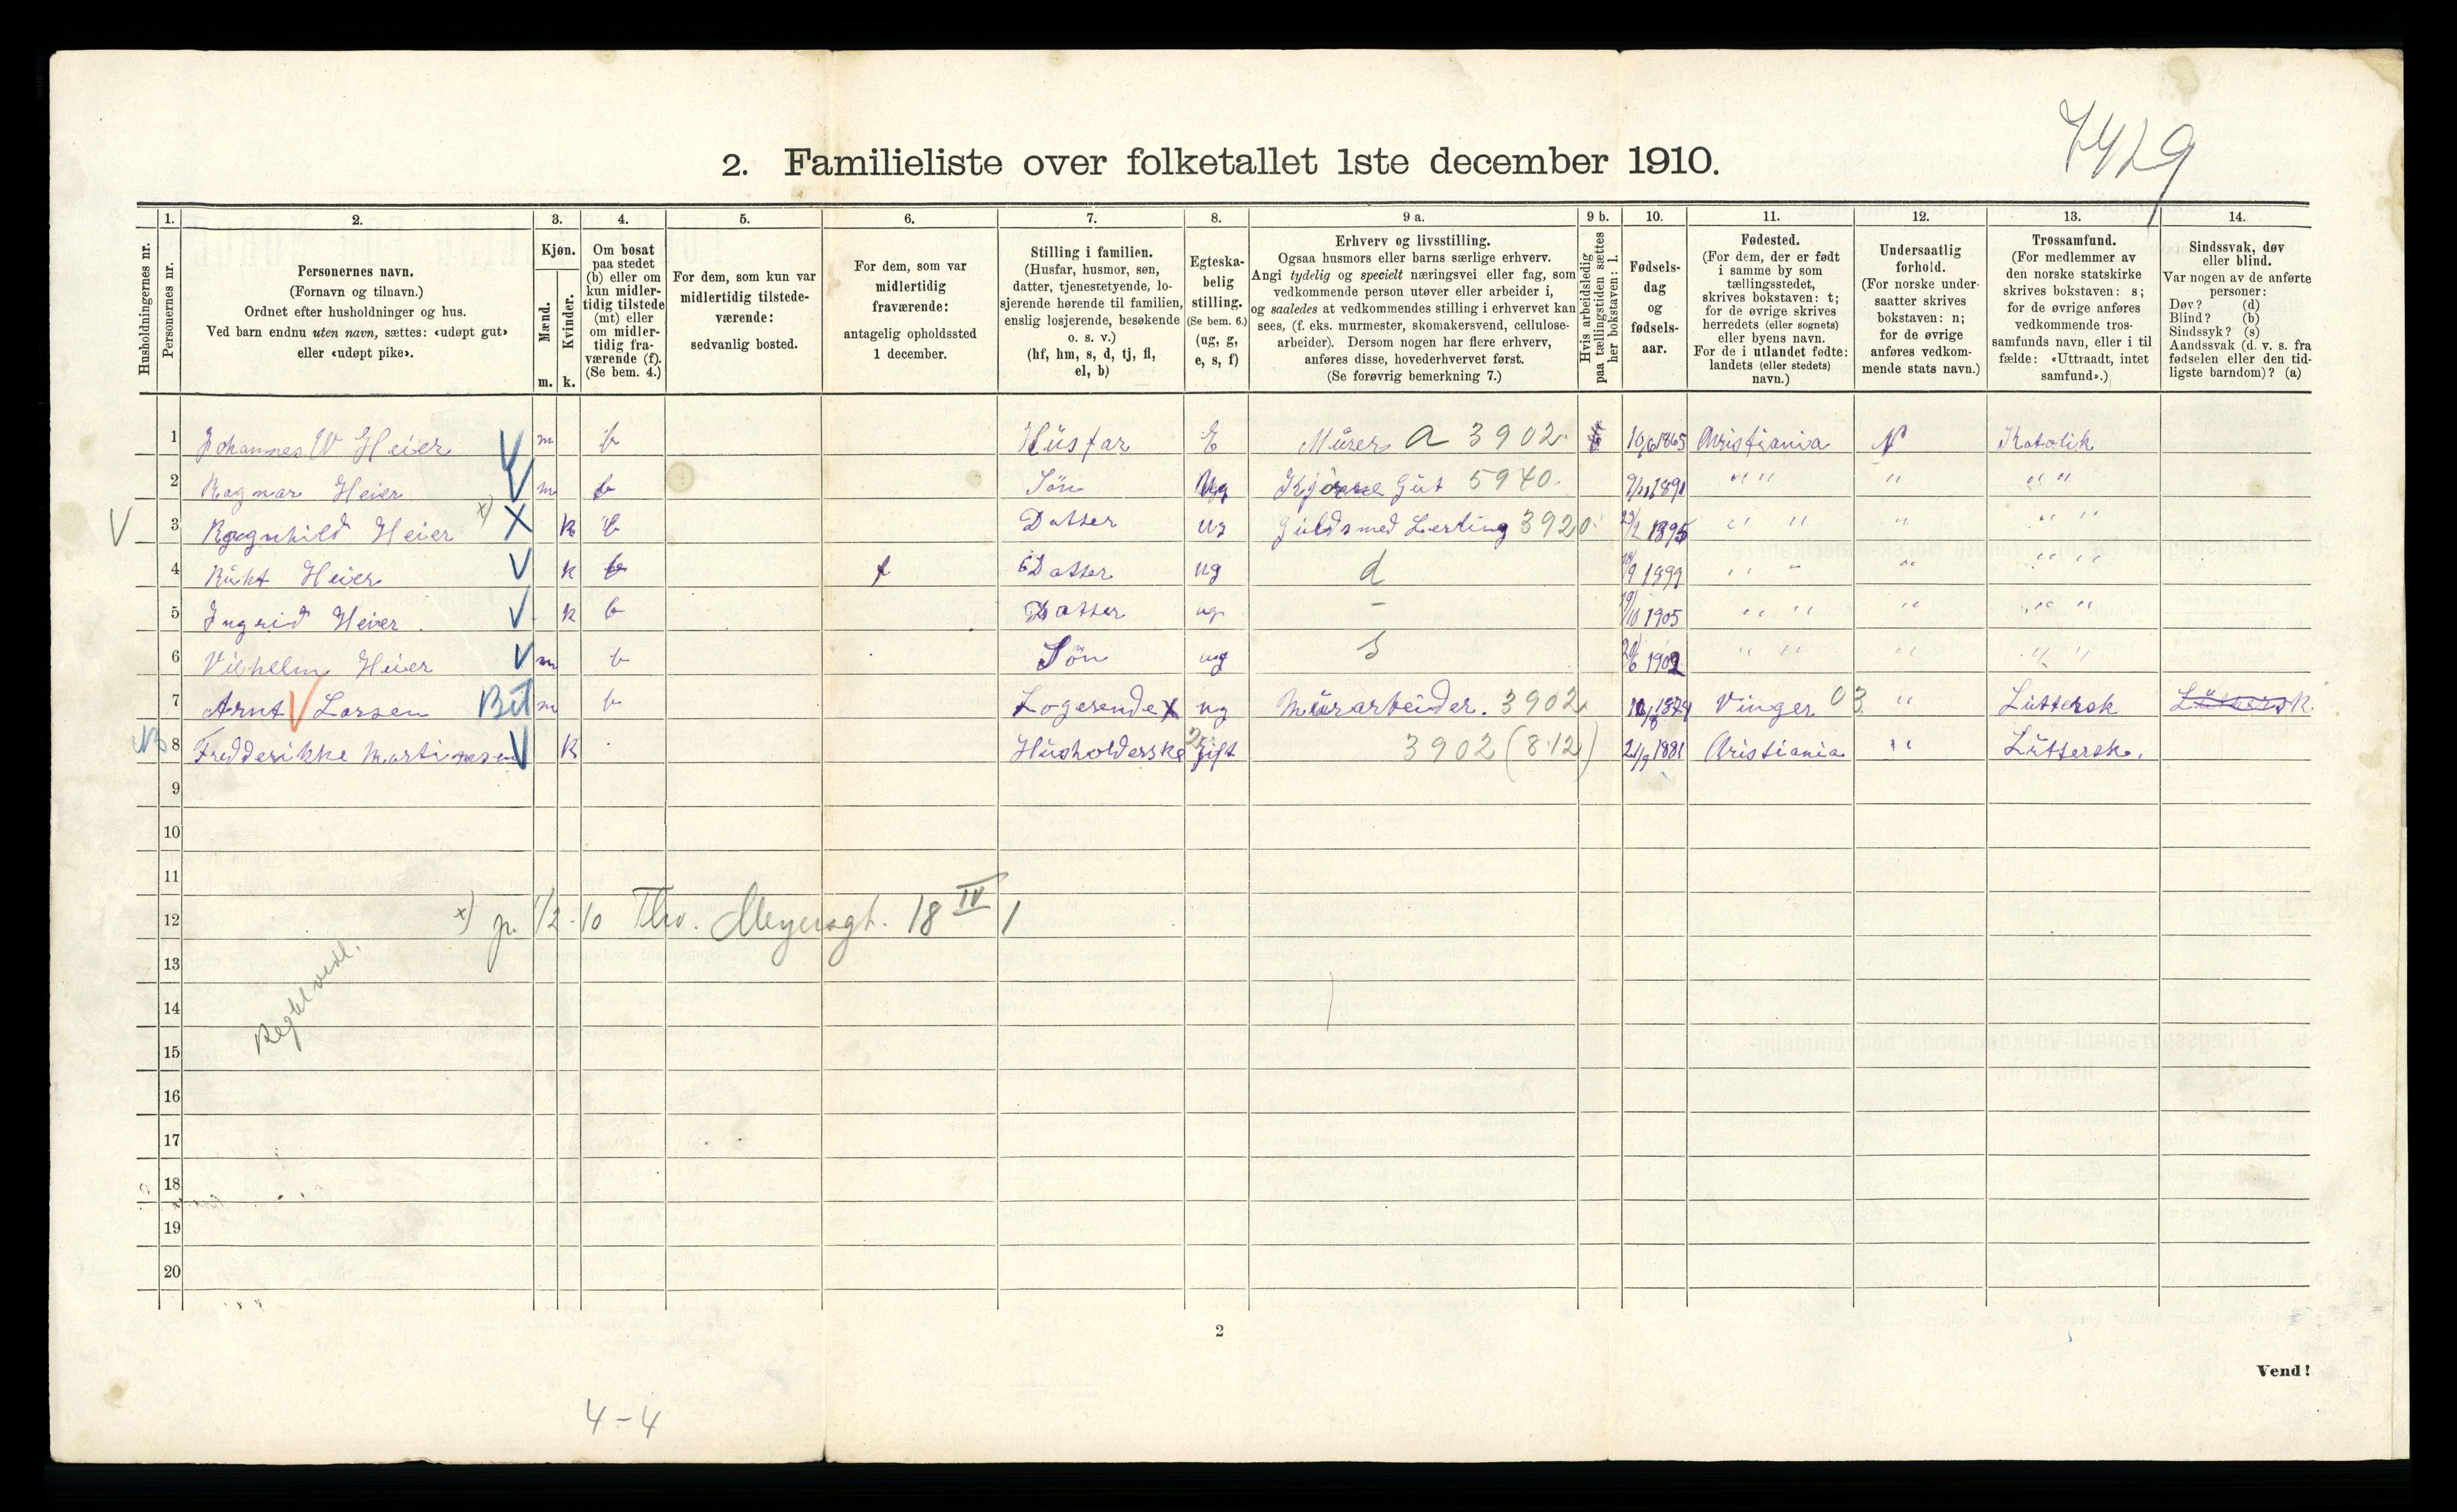 7429
2. Familieliste over folketallet 1ste december 1910.
Husholdningernes nr.
1.
Personernes nr.
2.
Personernes navn.
(Fornavn og tilnavn.)
Ordnet efter husholdninger og hus.
Ved barn endnu uten navn, sættes: «udøpt gut»
eller «udøpt pike».
3.
Kjøn.
Mænd.
Kvinder.
m. k.
4.
Om bosat
paa stedet
(b) eller om
kun midler-
tidig tilstede
(mt) eller
om midler-
tidig fra-
værende (f).
(Se bem. 4.)
5.
For dem, som kun var
midlertidig tilstede-
værende:
sedvanlig bosted.
6.
For dem, som var
midlertidig
fraværende:
antagelig opholdssted
1 december.
7.
Stilling i familien.
(Husfar, husmor, søn,
datter, tjenestetyende, lo-
sjerende hørende til familien,
enslig losjerende, besøkende
o. s. v.)
(hf, hm, s, d, tj, fl,
el, b)
8.
Egteska-
belig
stilling.
(Se bem. 6.)
(ug, g,
e, s, f)
9 a.
Erhverv og livsstilling.
Ogsaa husmors eller barns særlige erhverv.
Angi tydelig og specielt næringsvei eller fag, som
vedkommende person utøver eller arbeider i,
og saaledes at vedkommendes stilling i erhvervet kan
sees, (f. eks. murmester, skomakersvend, cellulose-
arbeider). Dersom nogen har flere erhverv,
anføres disse, hovederhvervet først.
(Se forøvrig bemerkning 7.)
9 b.
Hvis arbeidsledig
paa tællingstiden sættes
her bokstaven: l.
10.
Fødsels-
dag
og
fødsels-
aar.
11.
Fødested.
(For dem, der er født
i samme by som
tællingsstedet,
skrives bokstaven: t;
for de øvrige skrives
herredets (eller sognets)
eller byens navn.
For de i utlandet fødte:
landets (eller stedets)
navn.)
12.
Undersaatlig
forhold.
(For norske under-
saatter skrives
bokstaven: n;
for de øvrige
anføres vedkom-
mende stats navn.)
13.
Trossamfund.
(For medlemmer av
den norske statskirke
skrives bokstaven: s;
for de øvrige anføres
vedkommende tros-
samfunds navn, eller i til
fælde: «Uttraadt, intet
samfund».)
14.
Sindssvak, døv
eller blind.
Var nogen av de anførte
personer:
Døv? (d)
Blind? (b)
Sindssyk? (s)
Aandssvak (d. v. s. fra
fødselen eller den tid-
ligste barndom)? (a)
1 Johannes W Heier V m b Husfar E Murer a 3902. 10/6 1865 Christiania N Katolik
2 Ragnar Heier V m b Søn ug Gut 5940. 1891 " " " " "
V 3 Ragnhild Heier x) X k b Datter ug Guldsmed Lerling 3920. 1895 " " " " "
4 Heier V k b f Datter ug d 1899 " " " " "
5 Ingrid Heier V k b Datter ug - 19/10 1905 " " " " "
6 Vilhelm Heier V m b Søn ug S 1902 " " " " "
7 Arnt V Larsen Bet m b Logerende X ug Murarbeider. 3902 Vinger 03. " Luttersk Luttersk.
NB 8 Fredderikke Martinesen V k Husholderske gift 3902 (8.12) 21/9 1881 Cristiania " Luttersk.
9
10
11
12 x) p. 1/2-10 Thv. Meyersgt. 18 IV 1
13
14
15
16
17
18
19
20
2
Vend!
4-4